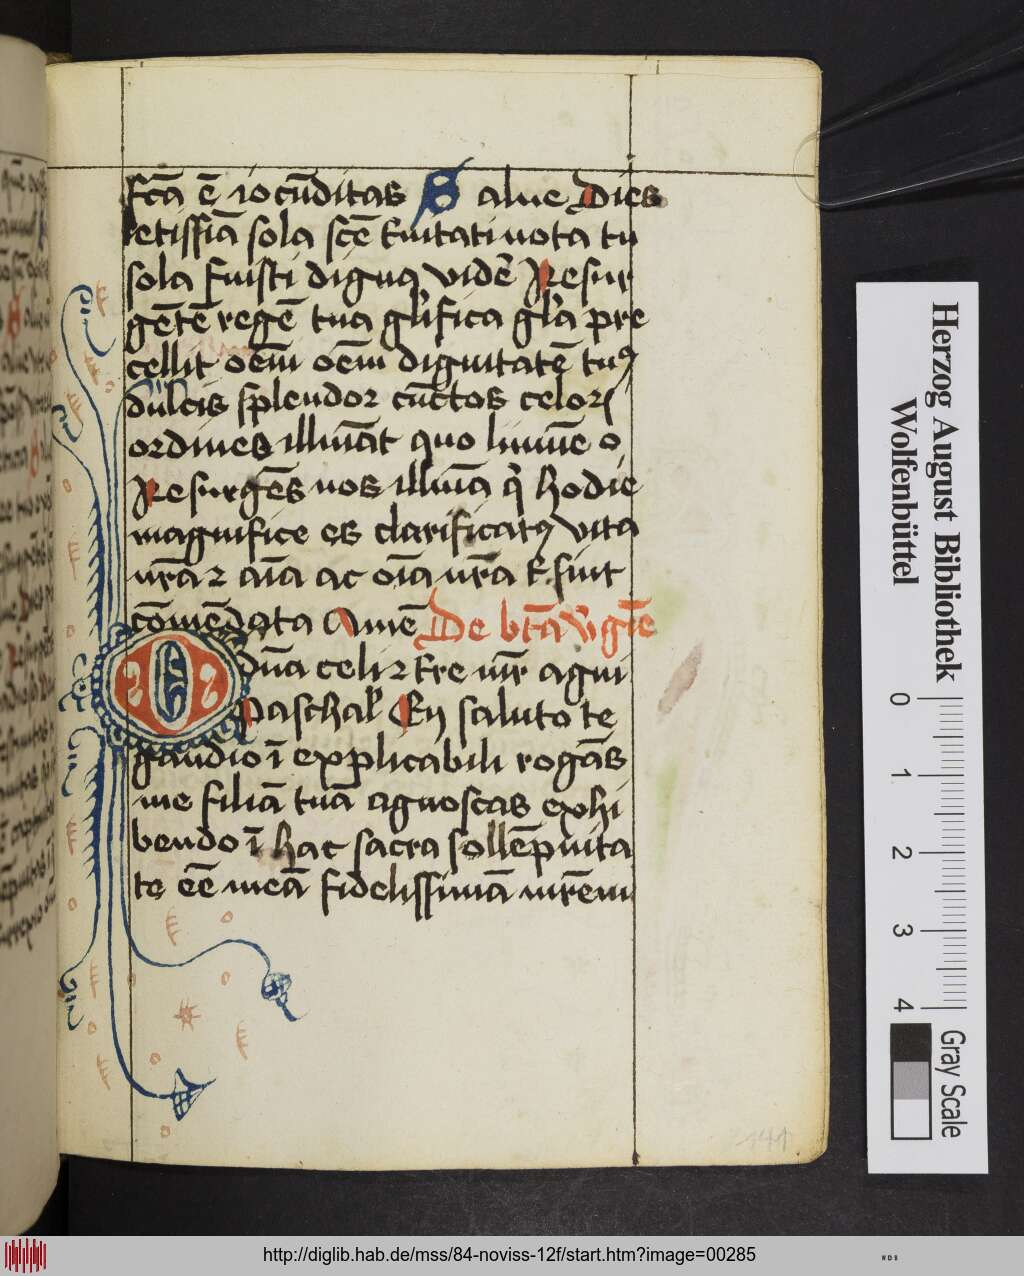 fctā ē iocūditas Salue Dies
letissiā sola scē t̄nitati nota tu
sola fuisti digna vidē Resur
gētē regē tua gl̄ifica gl̄ia pre
cellit oēm oēm dignitatē tuꝯ
dulcis splendor cūctos celoꝝ
ordines illuiāt quo lumīe o
Resurgēs nos illuīa q̄ hodie
magnifice es clarificatꝯ vita
nr̄a ⁊ aīa ac oīa nr̄a t̄ sint
cōmēdata Amē De btā v̄gīe
O Dn̄a celi ⁊ t̄re mr̄ agni
Paschal̄ En saluto te
gaudio ī explicabili rogās
me filiā tuā agnoscas exhi
bendo ī hac sacra sollēpnita
te eē meā fidelissimā mr̄em
141
Herzog August Bibliothek
Wolfenbüttel
0 1 2 3 4
Gray Scale
http://diglib.hab.de/mss/84-noviss-12f/start.htm?image=00285